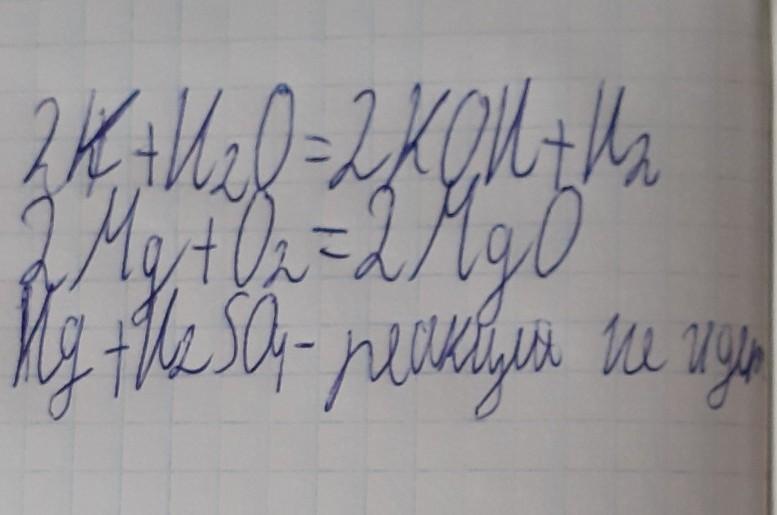 2K+H₂O=2KOH+H₂
2Mg+O₂=2MgO
Hg+H₂SO₄- реакция не идет